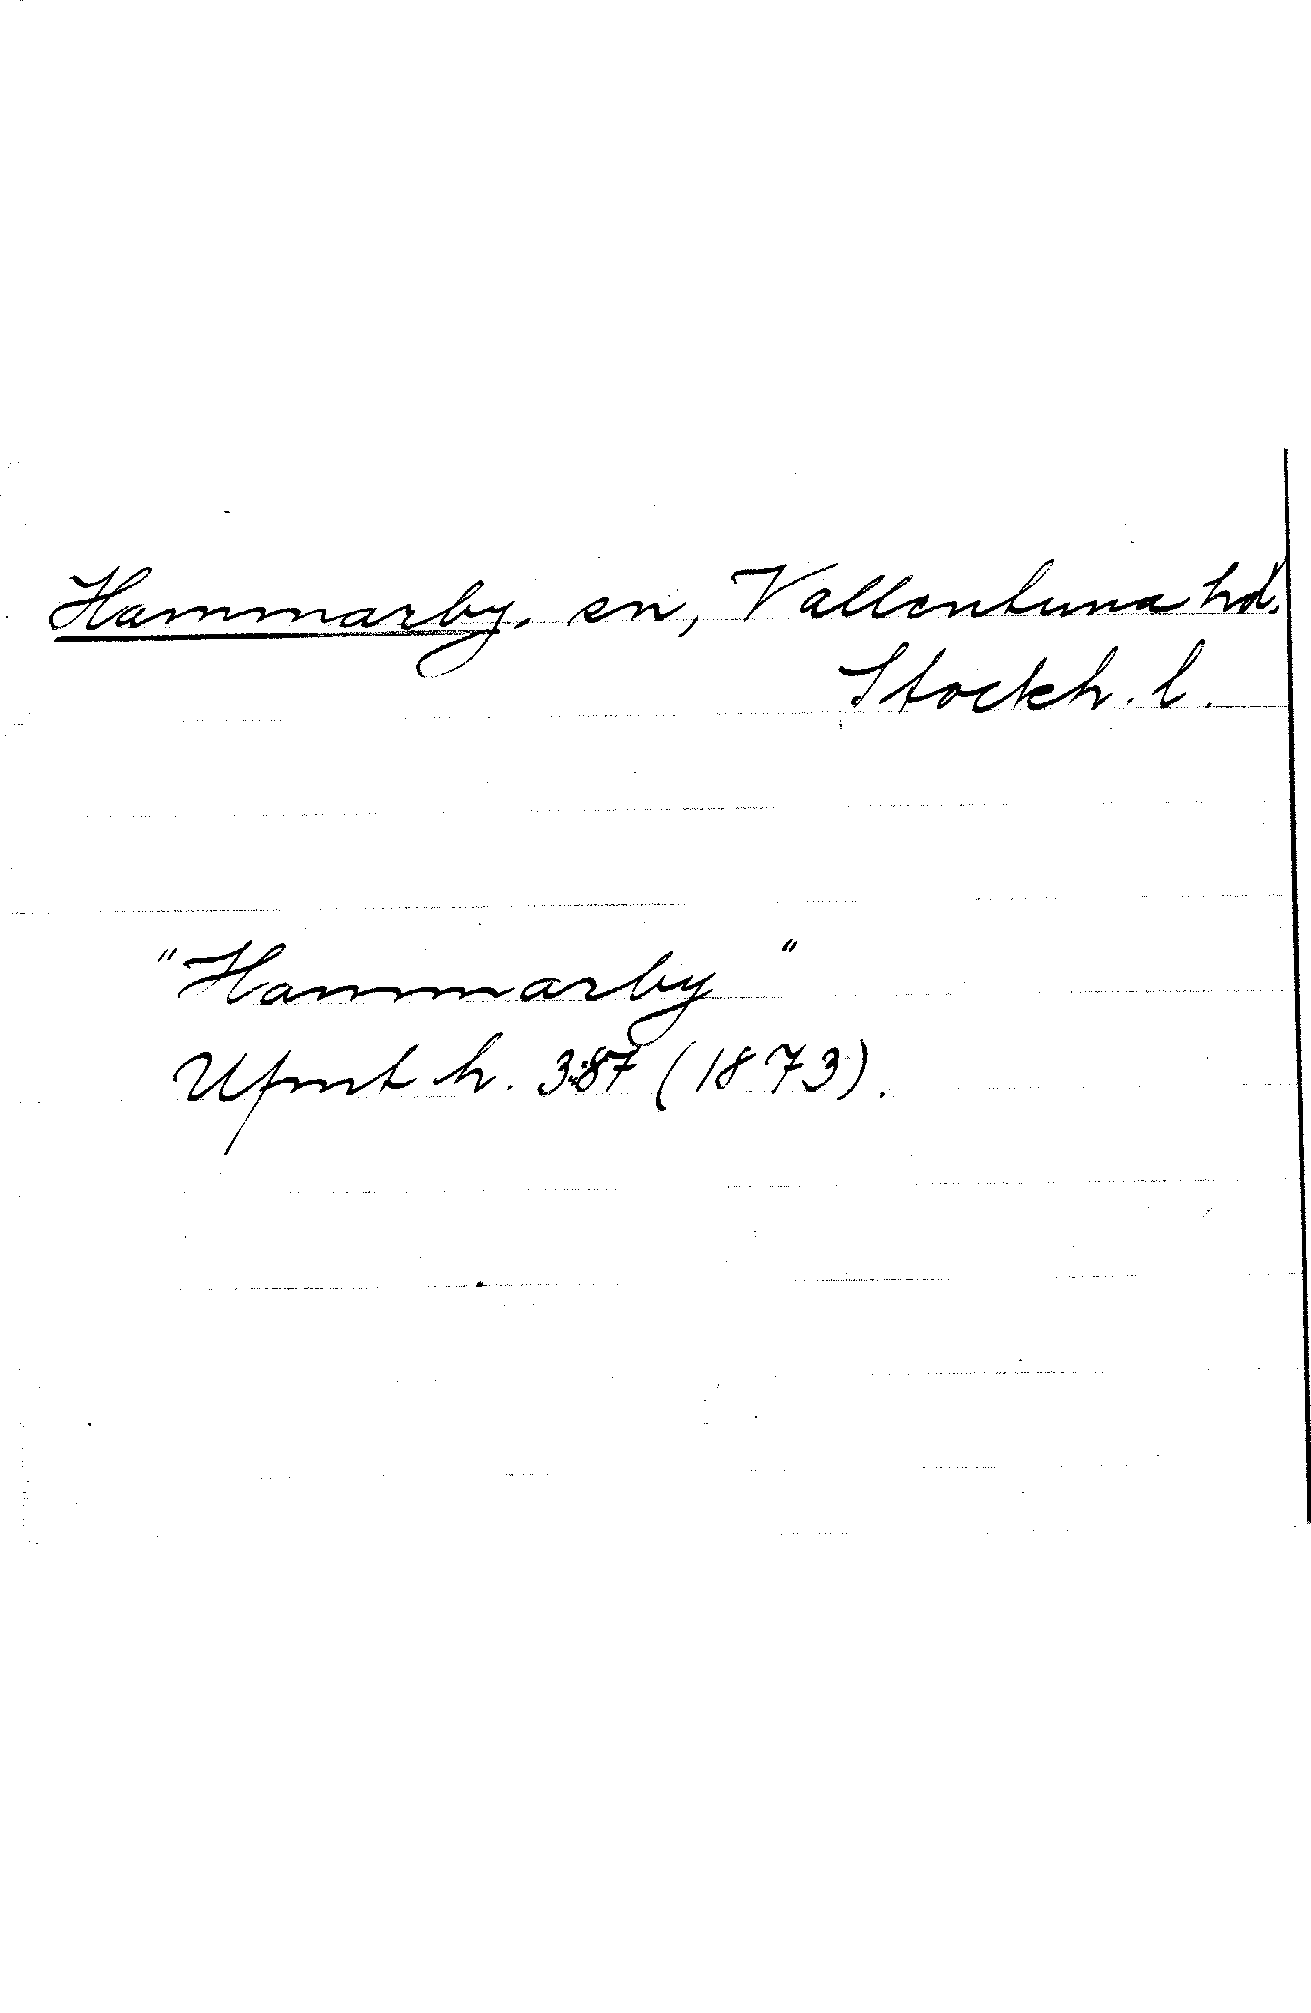 Hammarby. sn, Vallentuna hd.
Stockh. l.
"Hammarby"
Ufmt h. 3:87 (1873).